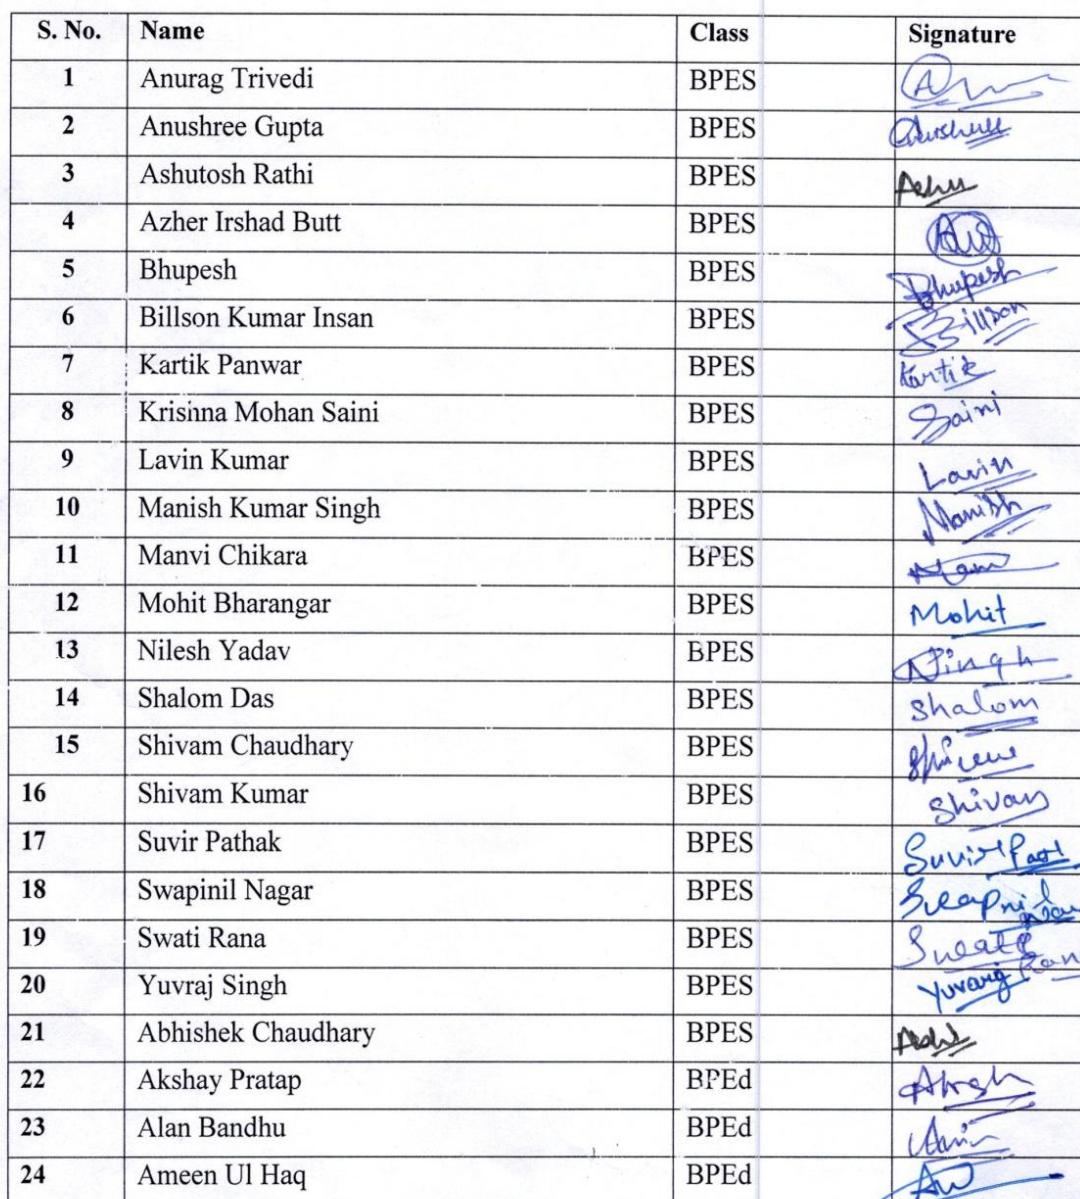 S. No. Name Class Signature
1 Anurag Trivedi BPES
2 Anushree Gupta BPES
3 Ashutosh Rathi BPES Ashu
4 Azher Irshad Butt BPES
5 Bhupesh BPES Bhupesh
6 Billson Kumar Insan BPES Billson
7 Kartik Panwar BPES Kartik
8 Krishna Mohan Saini BPES Saini
9 Lavin Kumar BPES Lavin
10 Manish Kumar Singh BPES Manish
11 Manvi Chikara BPES
12 Mohit Bharangar BPES Mohit
13 Nilesh Yadav BPES
14 Shalom Das BPES Shalom
15 Shivam Chaudhary BPES
16 Shivam Kumar BPES Shivam
17 Suvir Pathak BPES Suvir
18 Swapinil Nagar BPES Swapnil
19 Swati Rana BPES Swati
20 Yuvraj Singh BPES Yuvraj
21 Abhishek Chaudhary BPES
22 Akshay Pratap BPEd
23 Alan Bandhu BPEd
24 Ameen Ul Haq BPEd